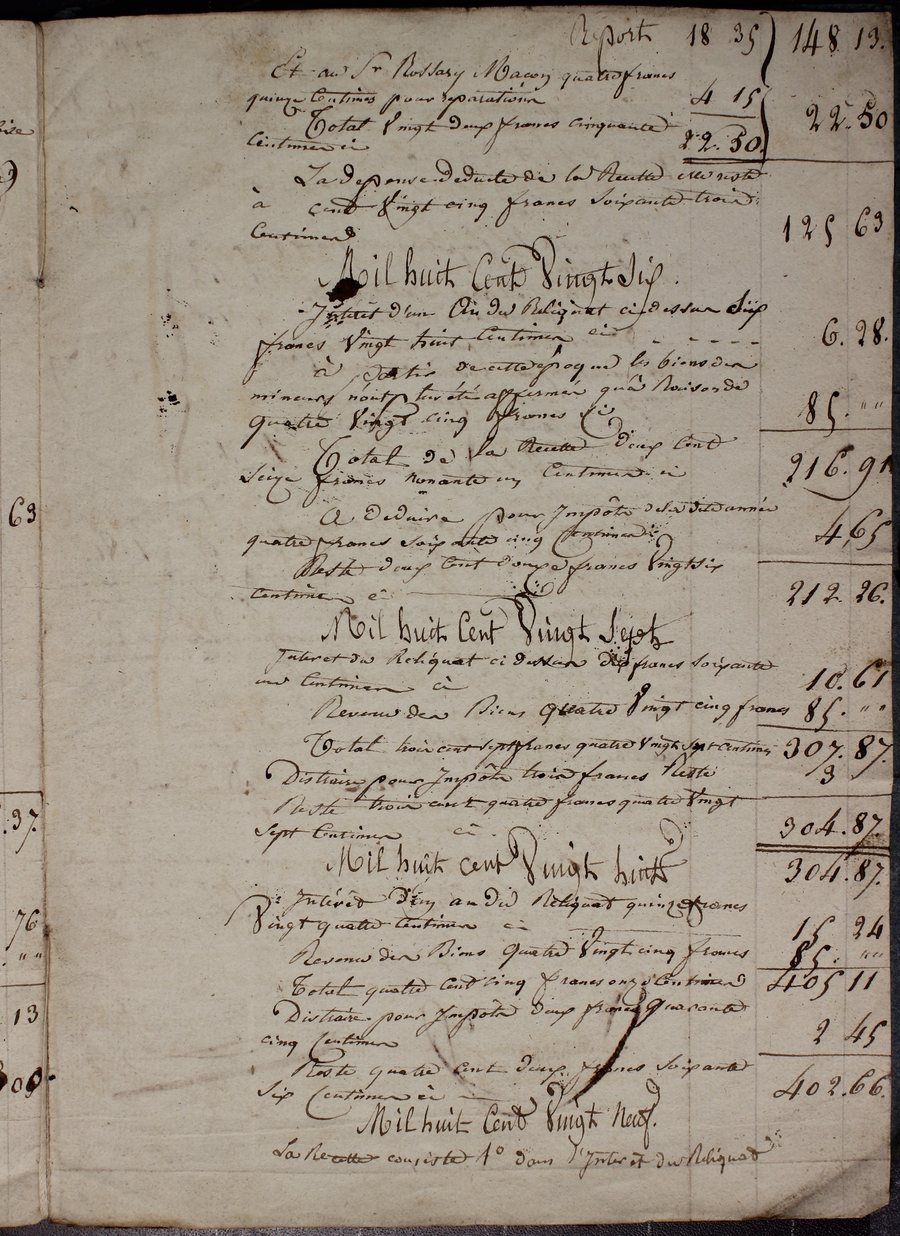 Report 18 35 148 13.
Et au Sr Rossary Maçon quatre francs
quinze Centimes pour reparations 4 15
Total Vingt deux francs cinquante 22.50
Centimes ci 22.50.
La depense deduite de la Recette elle reste
à cent Vingt cinq francs Soixante trois
Centimes 125 63
Mil huit Cent Vingt Six.
Interet d'un An du Reliquat ci dessus Six
francs Vingt huit Centimes ci 6.28.
à partir de cette époque les biens des
mineurs n'ont plus été affermés qu'à Raison de
quatre Vingt cinq francs ci 85. " "
Total de la Recette deux Cent
Seize francs nonante un Centimes ci 216.91
A Deduire pour Impôts de la dite année
quatre francs Soixante cinq Centimes ci 4,65
Reste deux Cent douze francs Vingt Six
Centimes ci 212.26.
Mil huit Cent Vingt Sept
Interet du Reliquat ci dessus dix francs Soixante
un Centimes ci 10.61
Revenu des Biens quatre Vingt cinq francs 85. " "
Total trois cent sept francs quatre Vingt Sept Centimes 307.87.
Distraire pour Impôts trois francs Reste 3
Reste trois cent quatre francs quatre Vingt
Sept Centimes ci 304.87.
Mil huit cent Vingt huit 304.87.
Intérêt d'un an du Reliquat quinze francs
Vingt quatre Centimes ci 15 24
Revenu des Biens Quatre Vingt cinq francs 85. " "
Total quatre Cent Cinq francs onze Centimes 405 11
Distraire pour Impôts deux francs Quarante
cinq Centimes 2 45
Reste quatre cent deux francs Soixante
Six Centimes ci 402.66.
Mil huit Cent Vingt Neuf.
La Recette consiste 1º dans l'Interet du Reliquat
63
.37.
76
" "
13
00.